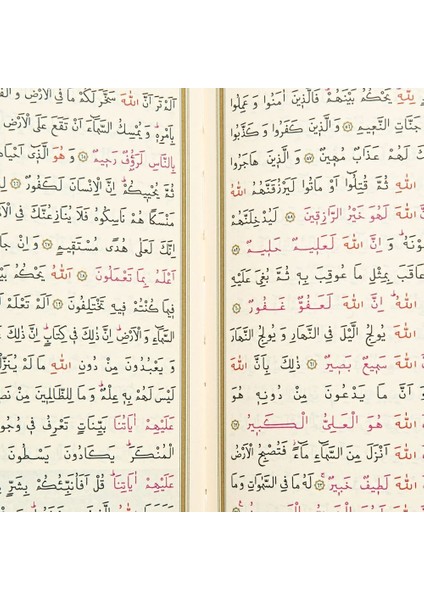 لِلّٰهِ يَحْكُمُ بَيْنَهُمْ فَالَّذ۪ينَ اٰمَنُوا وَعَمِلُوا
جَنَّاتِ النَّع۪يمِ ﴿٥٦﴾ وَالَّذ۪ينَ كَفَرُوا وَكَذَّبُوا
كَ لَهُمْ عَذَابٌ مُه۪ينٌ ﴿٥٧﴾ وَالَّذ۪ينَ هَاجَرُوا
اللّٰهِ ثُمَّ قُتِلُٓوا اَوْ مَاتُوا لَيَرْزُقَنَّهُمُ اللّٰهُ
اللّٰهَ لَهُوَ خَيْرُ الرَّازِق۪ينَ ﴿٥٨﴾ لَيُدْخِلَنَّهُمْ
ـوْنَهُ وَاِنَّ اللّٰهَ لَعَل۪يمٌ حَل۪يمٌ ﴿٥٩﴾
عَاقَبَ بِمِثْلِ مَا عُوقِبَ بِه۪ ثُمَّ بُغِيَ عَلَيْهِ
اللّٰهُ اِنَّ اللّٰهَ لَعَفُوٌّ غَفُورٌ ﴿٦٠﴾
اللّٰهَ يُولِجُ الَّيْلَ فِي النَّهَارِ وَيُولِجُ النَّهَارَ
اللّٰهَ سَم۪يعٌ بَص۪يرٌ ﴿٦١﴾ ذٰلِكَ بِاَنَّ اللّٰهَ
وَاَنَّ مَا يَدْعُونَ مِنْ دُونِه۪ هُوَ
اللّٰهَ هُوَ الْعَلِيُّ الْكَب۪يرُ ﴿٦٢﴾
اللّٰهَ اَنْزَلَ مِنَ السَّمَٓاءِ مَٓاءً فَتُصْبِحُ الْاَرْضُ
اللّٰهَ لَط۪يفٌ خَب۪يرٌ ﴿٦٣﴾ لَهُ مَا فِي السَّمٰوَاتِ وَمَا
اللّٰهَ لَهُوَ الْغَنِيُّ الْحَم۪يدُ
اَلَمْ تَرَ اَنَّ اللّٰهَ سَخَّرَ لَكُمْ مَا فِي الْاَرْضِ وَالْفُ
بِاَمْرِه۪ وَيُمْسِكُ السَّمَٓاءَ اَنْ تَقَعَ عَلَى الْاَرْضِ
بِالنَّاسِ لَرَؤُ۫فٌ رَح۪يمٌ ﴿٦٥﴾ وَهُوَ الَّذ۪ٓي اَحْيَا
ثُمَّ يُحْي۪يكُمْ اِنَّ الْاِنْسَانَ لَكَفُورٌ ﴿٦٦﴾
مَنْسَكًا هُمْ نَاسِكُوهُ فَلَا يُنَازِعُنَّكَ فِي الْ
اِنَّكَ لَعَلٰى هُدًى مُسْتَق۪يمٍ ﴿٦٧﴾ وَاِنْ جَا
اَعْلَمُ بِمَا تَعْمَلُونَ ﴿٦٨﴾ اَللّٰهُ يَحْكُمُ بَيْ
ف۪يمَا كُنْتُمْ ف۪يهِ تَخْتَلِفُونَ ﴿٦٩﴾ اَلَمْ تَعْلَمْ
السَّمَٓاءِ وَالْاَرْضِ اِنَّ ذٰلِكَ ف۪ي كِتَابٍ اِنَّ ذٰلِكَ
وَيَعْبُدُونَ مِنْ دُونِ اللّٰهِ مَا لَمْ يُنَزِّلْ
لَيْسَ لَهُمْ بِه۪ عِلْمٌ وَمَا لِلظَّالِم۪ينَ مِنْ نَص۪
عَلَيْهِمْ اٰيَاتُنَا بَيِّنَاتٍ تَعْرِفُ ف۪ي وُجُو
الْمُنْكَرَ يَكَادُونَ يَسْطُونَ
عَلَيْهِمْ اٰيَاتِنَا قُلْ اَفَاُنَبِّئُكُمْ بِشَرٍّ